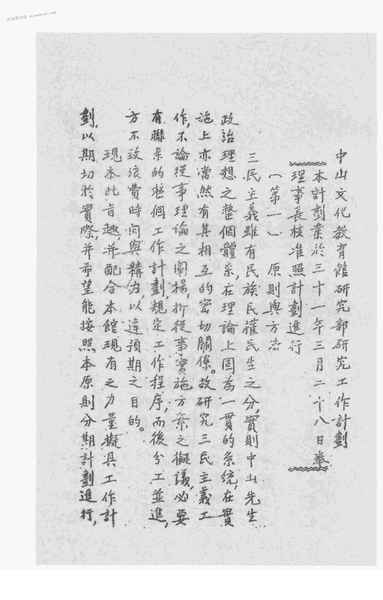 中山文化教育館研究部研究工作計劃
本計劃業於三十一年三月二十八日奉
理事長核准照計劃進行
（第一） 原則與方法
三民主義雖有民族民權民生之分實則中山先生
政治理想之整個體系在理論上固為一貫的系統，在實
施上亦當然有其相互的密切關係。故研究三民主義工
作，不論從事理論之闡揚，抑從事實施方案之擬議，必要
有聯系的整個工作計劃，規定工作程序，而後分工並進，
方不致浪費時間與精力，以達預期之目的。
現本此旨趣並配合本館現有之力量擬具工作計
劃，以期切於實際，并希望能按照本原則分期計劃進行，